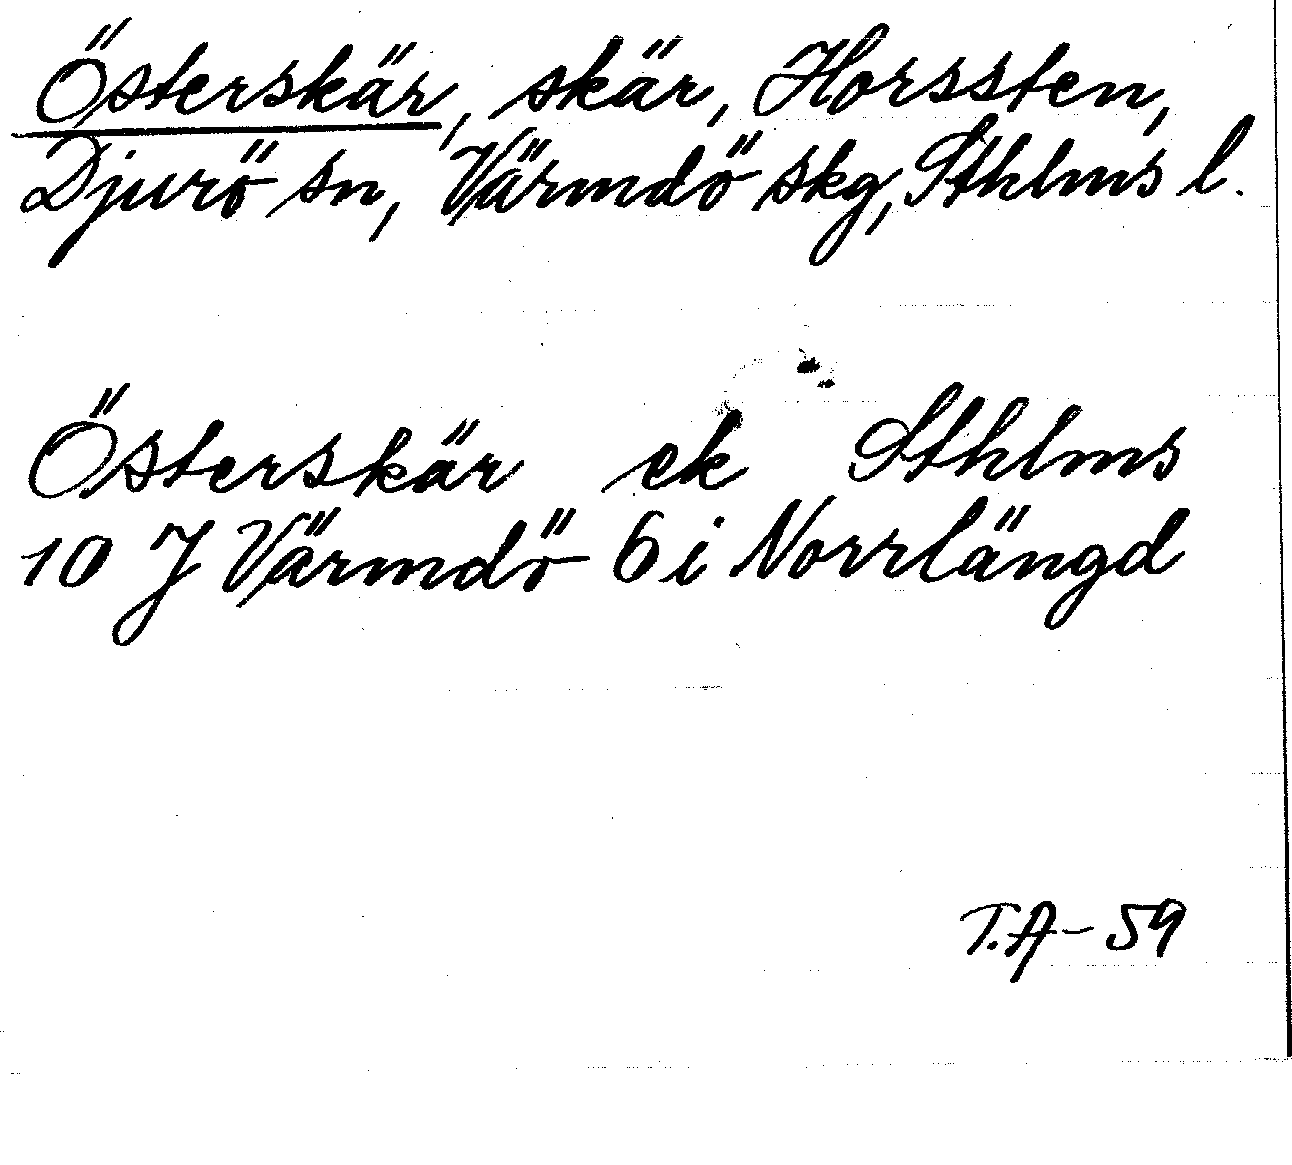 Österskär, skär, Horssten,
Djurö sn, Värmdö skg, Sthlms l.
Österskär ek Sthlms
10 J Värmdö 6 i Norrlängd
T.A - 59